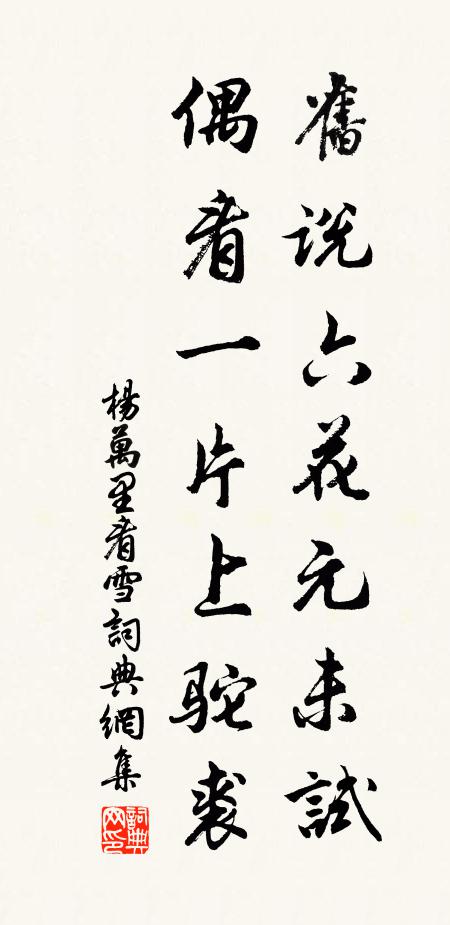 舊説六花元未試
偶看一片上駝裘
楊萬里看雪詞典網集
詞典网印